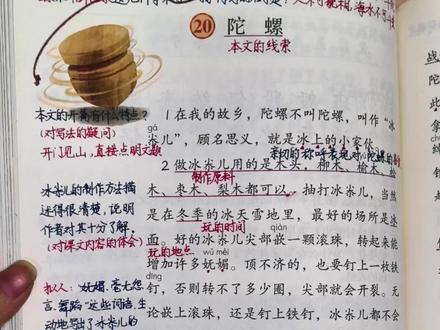 20 陀螺
本文的线索
本文的开篇有什么特点?
(对写法的疑问)
开门见山,直接点明文题
1 在我的故乡,陀螺不叫陀螺,叫作“冰
gá
尜儿”,顾名思义,就是冰上的小家伙。
亲切的称呼表现对陀螺的
2 做冰尜儿用的是木头,柳木、榆木、松
制作原料
木、枣木、梨木都可以。抽打冰尜儿,当然
是在冬季的冰天雪地里,最好的场所是冰
玩的时间
qiàn
面。好的冰尜儿尖部嵌一颗滚珠,转起来能
玩的地点
wǔ mèi
增加许多妩媚。顶不济的,也要钉上一枚铁
dīng
钉,否则转不了多少圈,尖部就会开裂。无
论嵌上滚珠,还是钉上铁钉,冰尜儿都不会
冰尜儿的制作方法描
述得很清楚,说明
作者对其十分了解。
(对课文内容的体会)
拟人:“妩媚、毫无怨
言、舞蹈”这些词语,生
动地写出了冰尜儿的